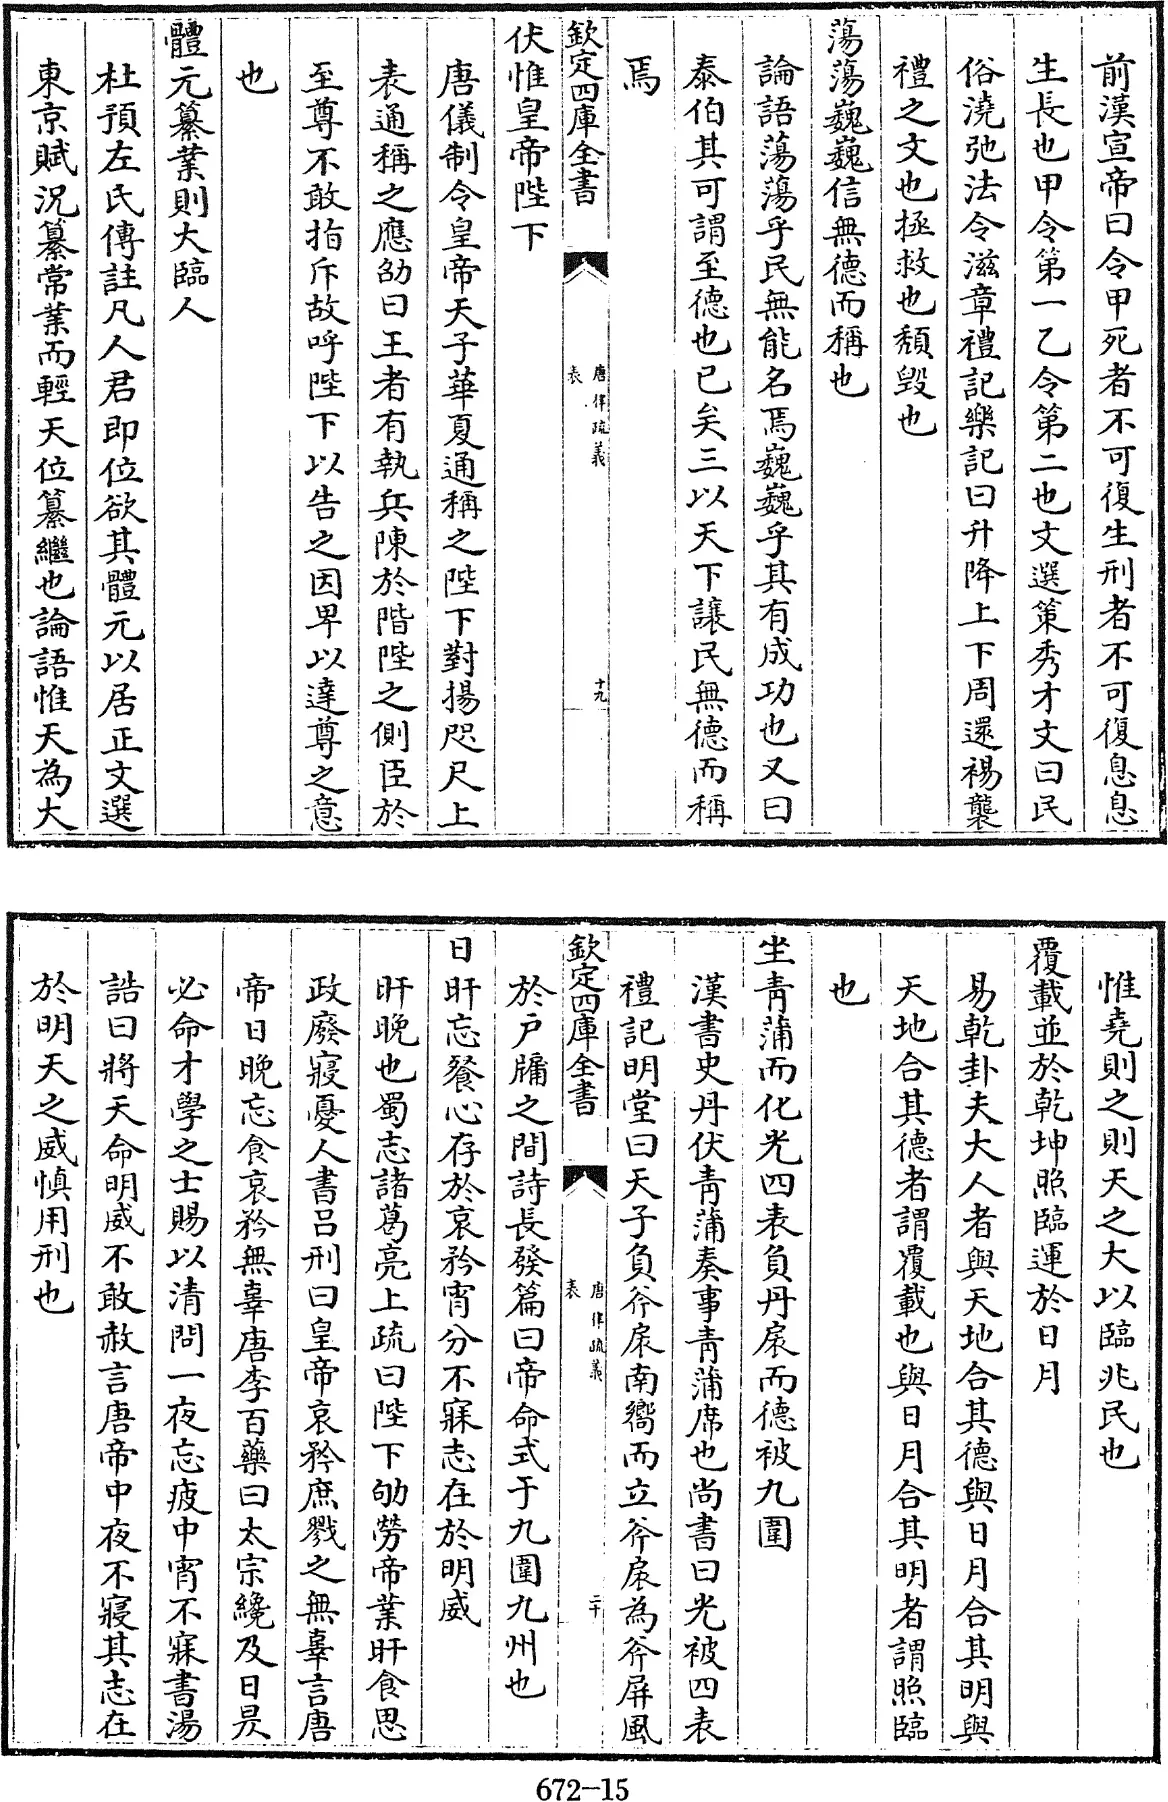 前漢宣帝曰令甲死者不可復生刑者不可復息息
生長也甲令第一乙令第二也文選策秀才文曰民
俗澆弛法令滋章禮記樂記曰升降上下周還裼襲
禮之文也拯救也頽毀也
蕩蕩巍巍信無德而稱也
論語蕩蕩乎民無能名焉巍巍乎其有成功也又曰
泰伯其可謂至德也已矣三以天下讓民無德而稱
焉
欽定四庫全書
唐律疏義
表
十九
伏惟皇帝陛下
唐儀制令皇帝天子華夏通稱之陛下對揚咫尺上
表通稱之應劭曰王者有執兵陳於階陛之側臣於
至尊不敢指斥故呼陛下以告之因卑以達尊之意
也
體元纂業則大臨人
杜預左氏傳註凡人君即位欲其體元以居正文選
東京賦況纂常業而輕天位纂繼也論語惟天為大
惟堯則之則天之大以臨兆民也
覆載並於乾坤照臨運於日月
易乾卦夫大人者與天地合其德與日月合其明與
天地合其德者謂覆載也與日月合其明者謂照臨
也
坐青蒲而化光四表負丹扆而德被九圍
漢書史丹伏青蒲奏事青蒲席也尚書曰光被四表
禮記明堂曰天子負斧扆南嚮而立斧扆為斧屏風
欽定四庫全書
唐律疏義
表
二十
於戶牖之間詩長發篇曰帝命式于九圍九州也
日旰忘餐心存於哀矜宵分不寐志在於明威
旰晚也蜀志諸葛亮上疏曰陛下劬勞帝業旰食思
政廢寢憂人書呂刑曰皇帝哀矜庶戮之無辜言唐
帝日晚忘食哀矜無辜唐李百藥曰太宗纔及日昃
必命才學之士賜以清問一夜忘疲中宵不寐書湯
誥曰將天命明威不敢赦言唐帝中夜不寢其志在
於明天之威慎用刑也
672-15